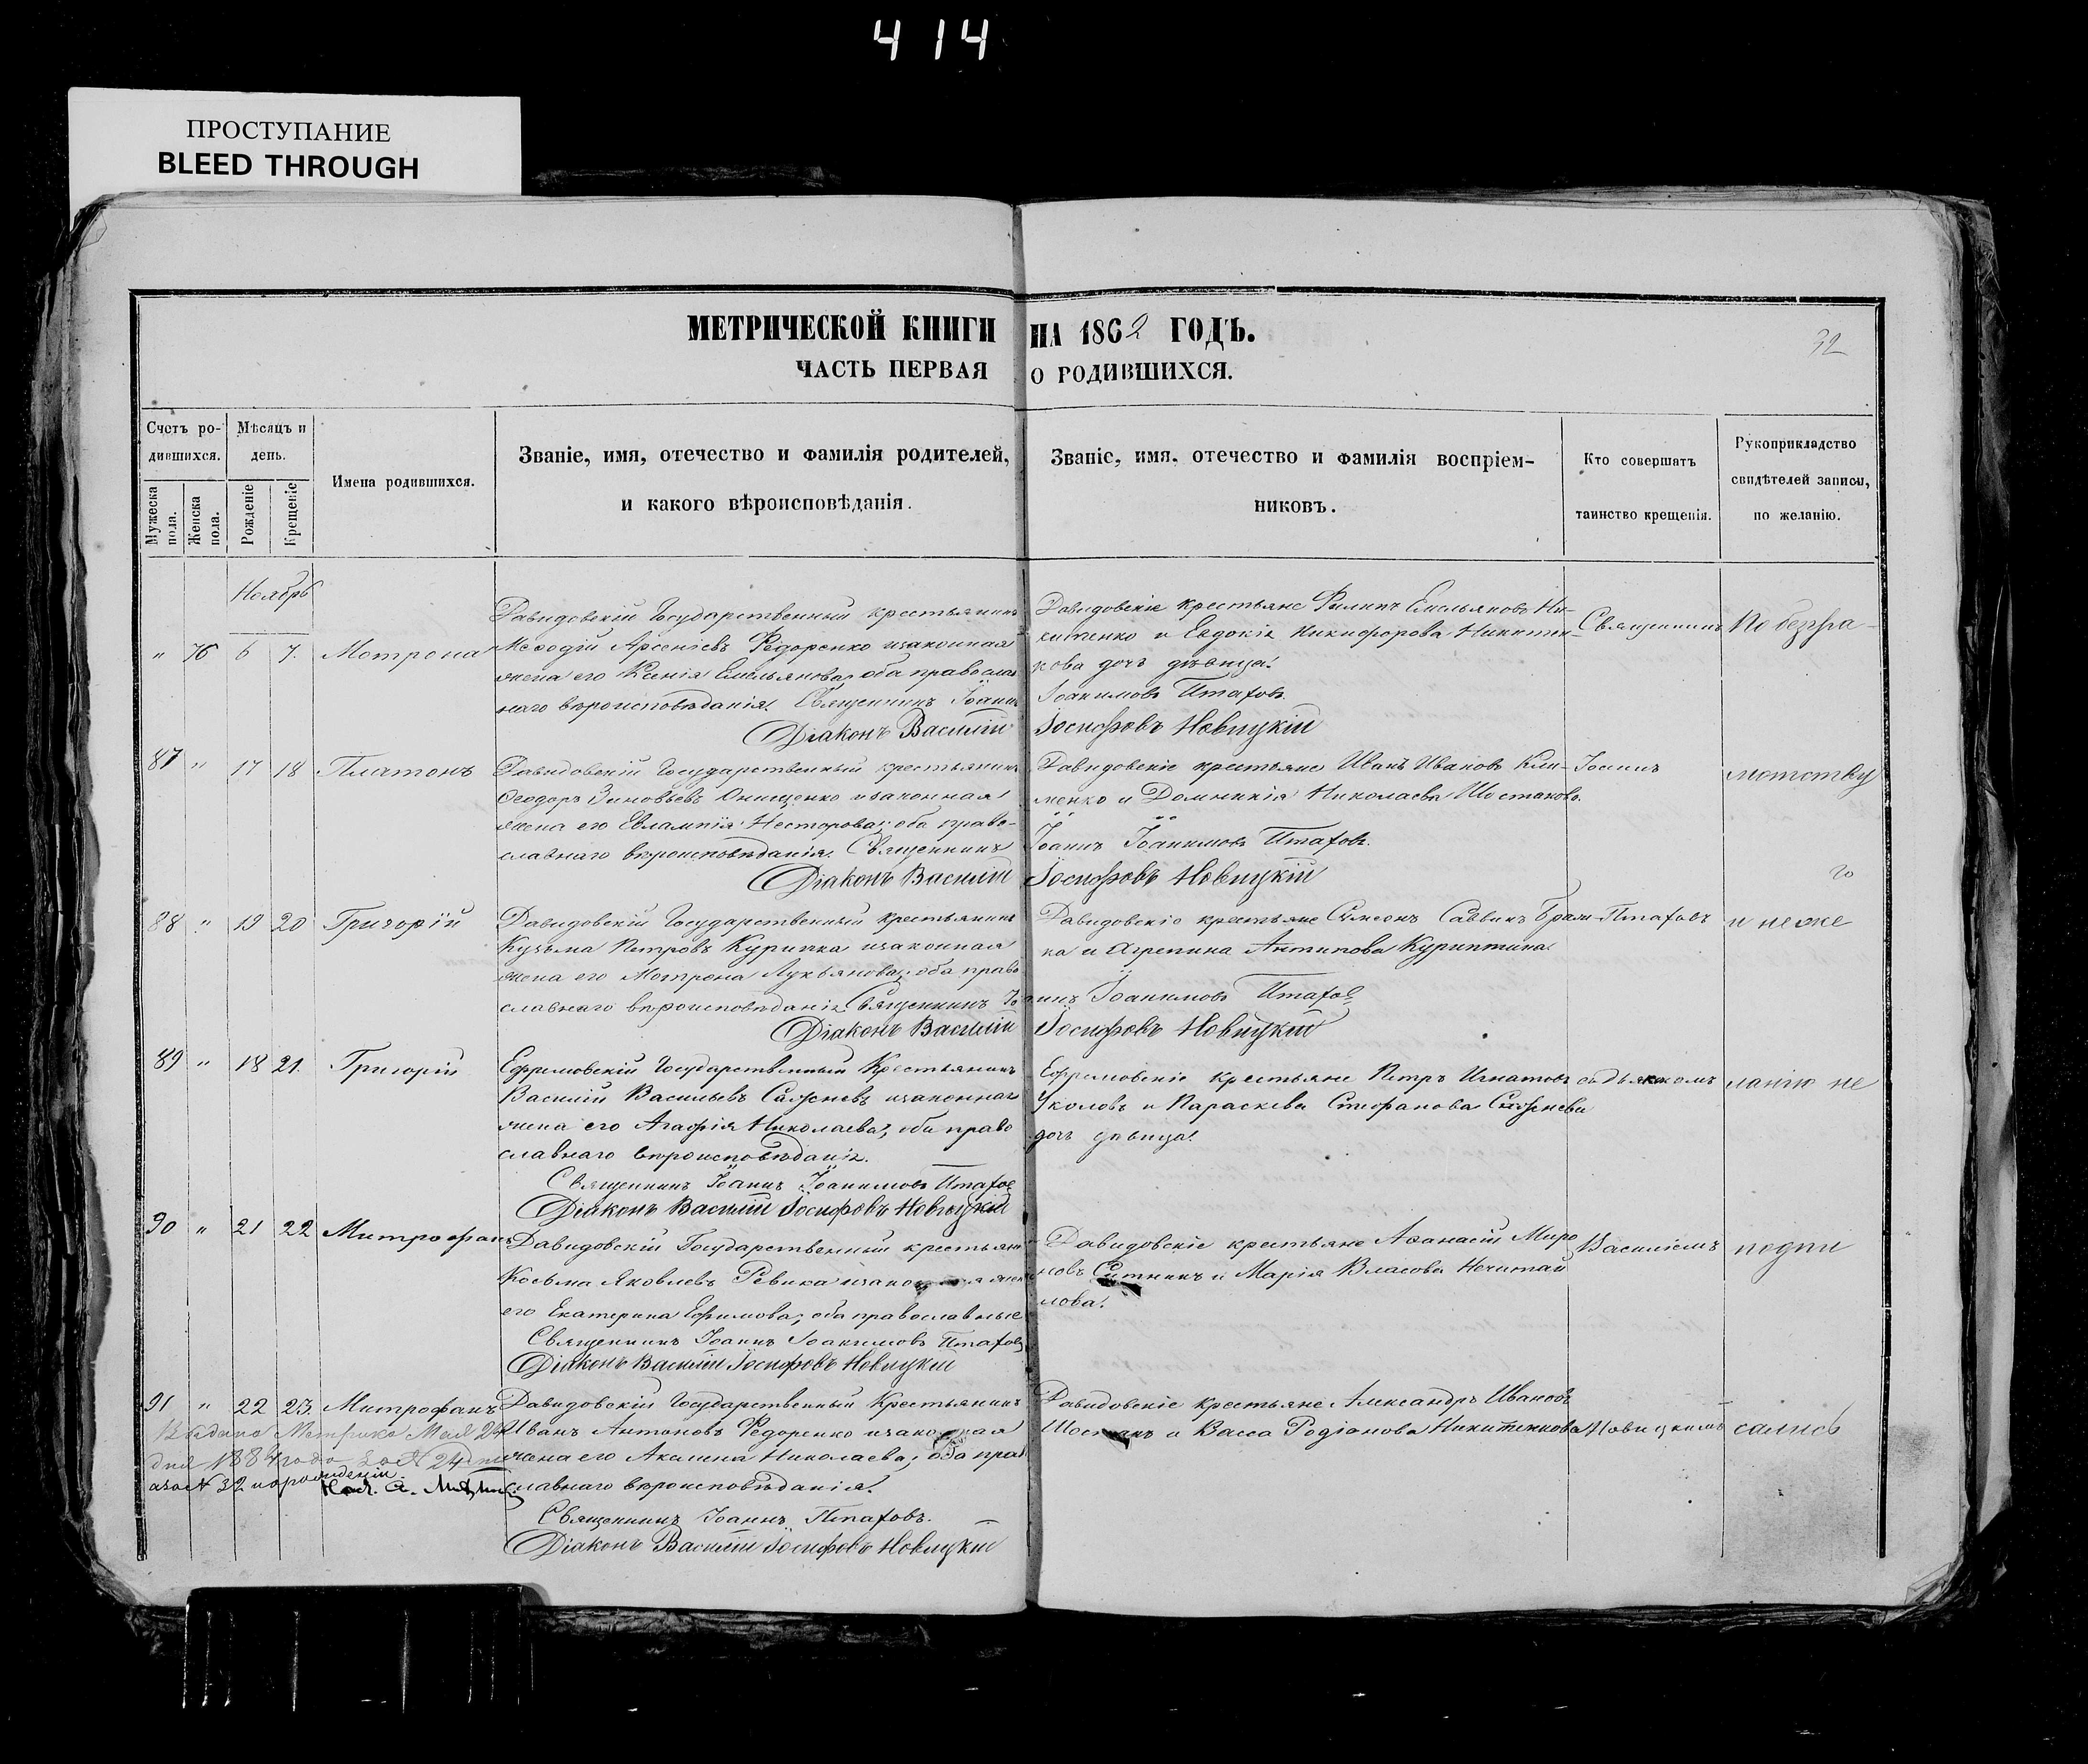 414
ПРОСТУПАНИЕ
BLEED THROUGH
МЕТРИЧЕСКОЙ КНИГИ НА 1862 ГОДЪ.
32
ЧАСТЬ ПЕРВАЯ О РОДИВШИХСЯ.
Счетъ родившихся.
Мужеска пола.
Женска пола.
Мѣсяцъ и день.
Рожденіе
Крещеніе
Имена родившихся.
Званіе, имя, отечество и фамилія родителей,
и какого вѣроисповѣданія.
Званіе, имя, отечество и фамилія воспріем-
никовъ.
Кто совершатъ
таинство крещенія.
Рукоприкладство
свидѣтелей записи,
по желанію.
Ноябрь
" 76 6 7. Мотрона
Давидовскій Государственный крестьянинъ
Меѳодій Арсеніевъ Федоренко изаконная
жена его Ксенія Емельянова, оба православ
наго вѣроисповѣданія. Священникъ Іоаннъ
Діаконъ Василій
Давидовскіе крестьяне Филипъ Емельяновъ Ни-
китенко и Евдокія Никифорова Никитен-
кова дочь дѣвица.
Іоакимовъ Птаховъ.
Іосифовъ Новицкій
Священникъ
По безгра-
87 " 17 18 Платонъ
Давидовскій Государственный крестьянинъ
Ѳеодоръ Зиновьевъ Онищенко изаконная
жена его Евлампія Несторова; оба право-
славнаго вѣроисповѣданія. Священникъ
Діаконъ Василій
Давидовскіе крестьяне Иванъ Ивановъ Кли-
менко и Домникія Николаева Шостакова.
Іоаннъ Іоакимовъ Птаховъ.
Іосифовъ Новицкій
Іоаннъ
мотству
88 " 19 20 Григорій
Давидовскій Государственный крестьянинъ
Кузьма Петровъ Куриттка изаконная
жена его Мотрона Лукьянова; оба право
славнаго вѣроисповѣданія Священникъ Іо
Діаконъ Василій
Давидовскіе крестьяне Симеонъ Саввинъ
ка и Агрепина Антипова
аннъ Іоакимовъ Птаховъ
Іосифовъ Новицкій
Птаховъ
и неже
89 " 18 21. Григорій
Ефремовскій Государственный Крестьянинъ
Василій Васильевъ изаконная
жена его Агафія Николаева, оба право
славнаго вѣроисповѣданія.
Священникъ Іоаннъ Іоакимовъ Птаховъ
Діаконъ Василій Іосифовъ Новицкій
Ефремовскіе крестьяне Петръ Игнатовъ
Уколовъ и Параскева Стефанова
дочь дѣвица.
съ дьякономъ
ланію не
90 " 21 22 Митрофанъ
Давидовскій Государственный крестьян
Косьма Яковлевъ Ревика жен
его Екатерина Ефимова; оба православные
Священникъ Іоаннъ Іоакимовъ Птаховъ
Діаконъ Василій Іосифовъ Новицкій
Давидовскіе крестьяне Аѳанасій Миро
новъ Ситникъ и Марія Власова Нечитай
лова.
Василіемъ
подпи
91 " 22 23. Митрофанъ
Давидовскій Государственный Крестьянинъ
Иванъ Антоновъ Федоренко изаконная
жена его Акилина Николаева; оба прав
славнаго вѣроисповѣданія.
Священникъ Іоаннъ Птаховъ.
Діаконъ Василій Іосифовъ Новицкій
Давидовскіе крестьяне Александръ Ивановъ
Шостакъ и Васса Родіонова Никитенкова
Новицкимъ
сались
Выдана Метрика Мая 24
дня 1884 года за № 24